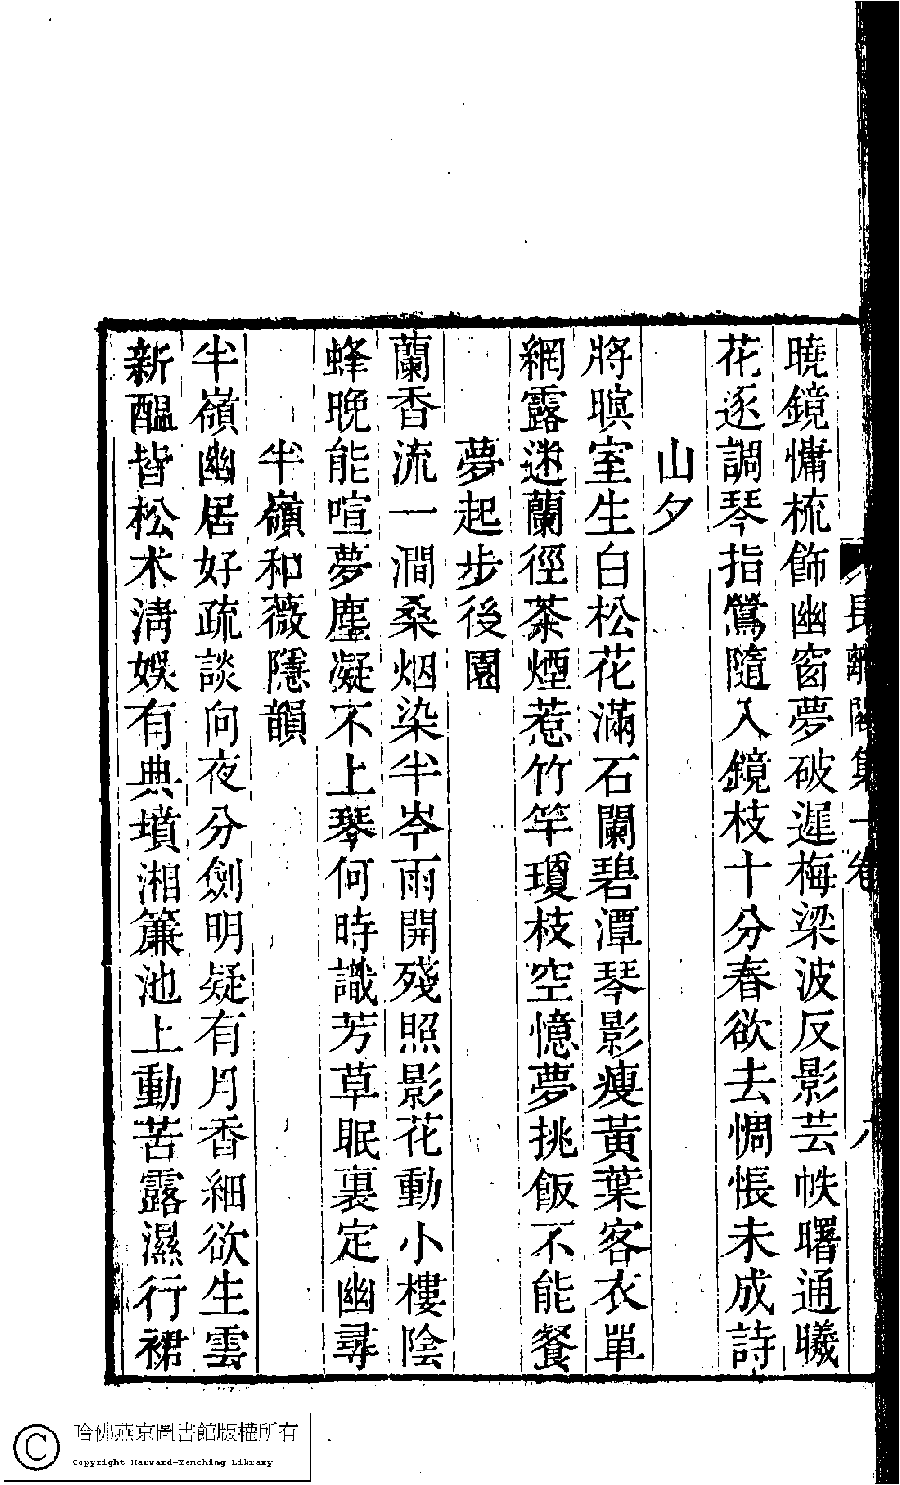 曉鏡慵梳飾幽窗夢破遲梅梁波反影芸帙曙通曦
花逐調琴指鶯隨入鏡枝十分春欲去惆悵未成詩
山夕
將暝室生白松花滿石闌碧潭琴影瘦黃葉客衣單
網露迷蘭徑茶煙惹竹竿瓊枝空憶夢挑飯不能餐
夢起步後園
蘭香流一澗桑烟染半岑雨開殘照影花動小樓陰
蜂晚能喧夢塵凝不上琴何時識芳草眠裏定幽尋
半嶺和薇隱韻
半嶺幽居好疏談向夜分劍明疑有月香細欲生雲
新醞皆松朮清娛有典墳湘簾池上動苦露濕行裙
哈佛燕京圖書館版權所有
Copyright Harvard-Yenching Library